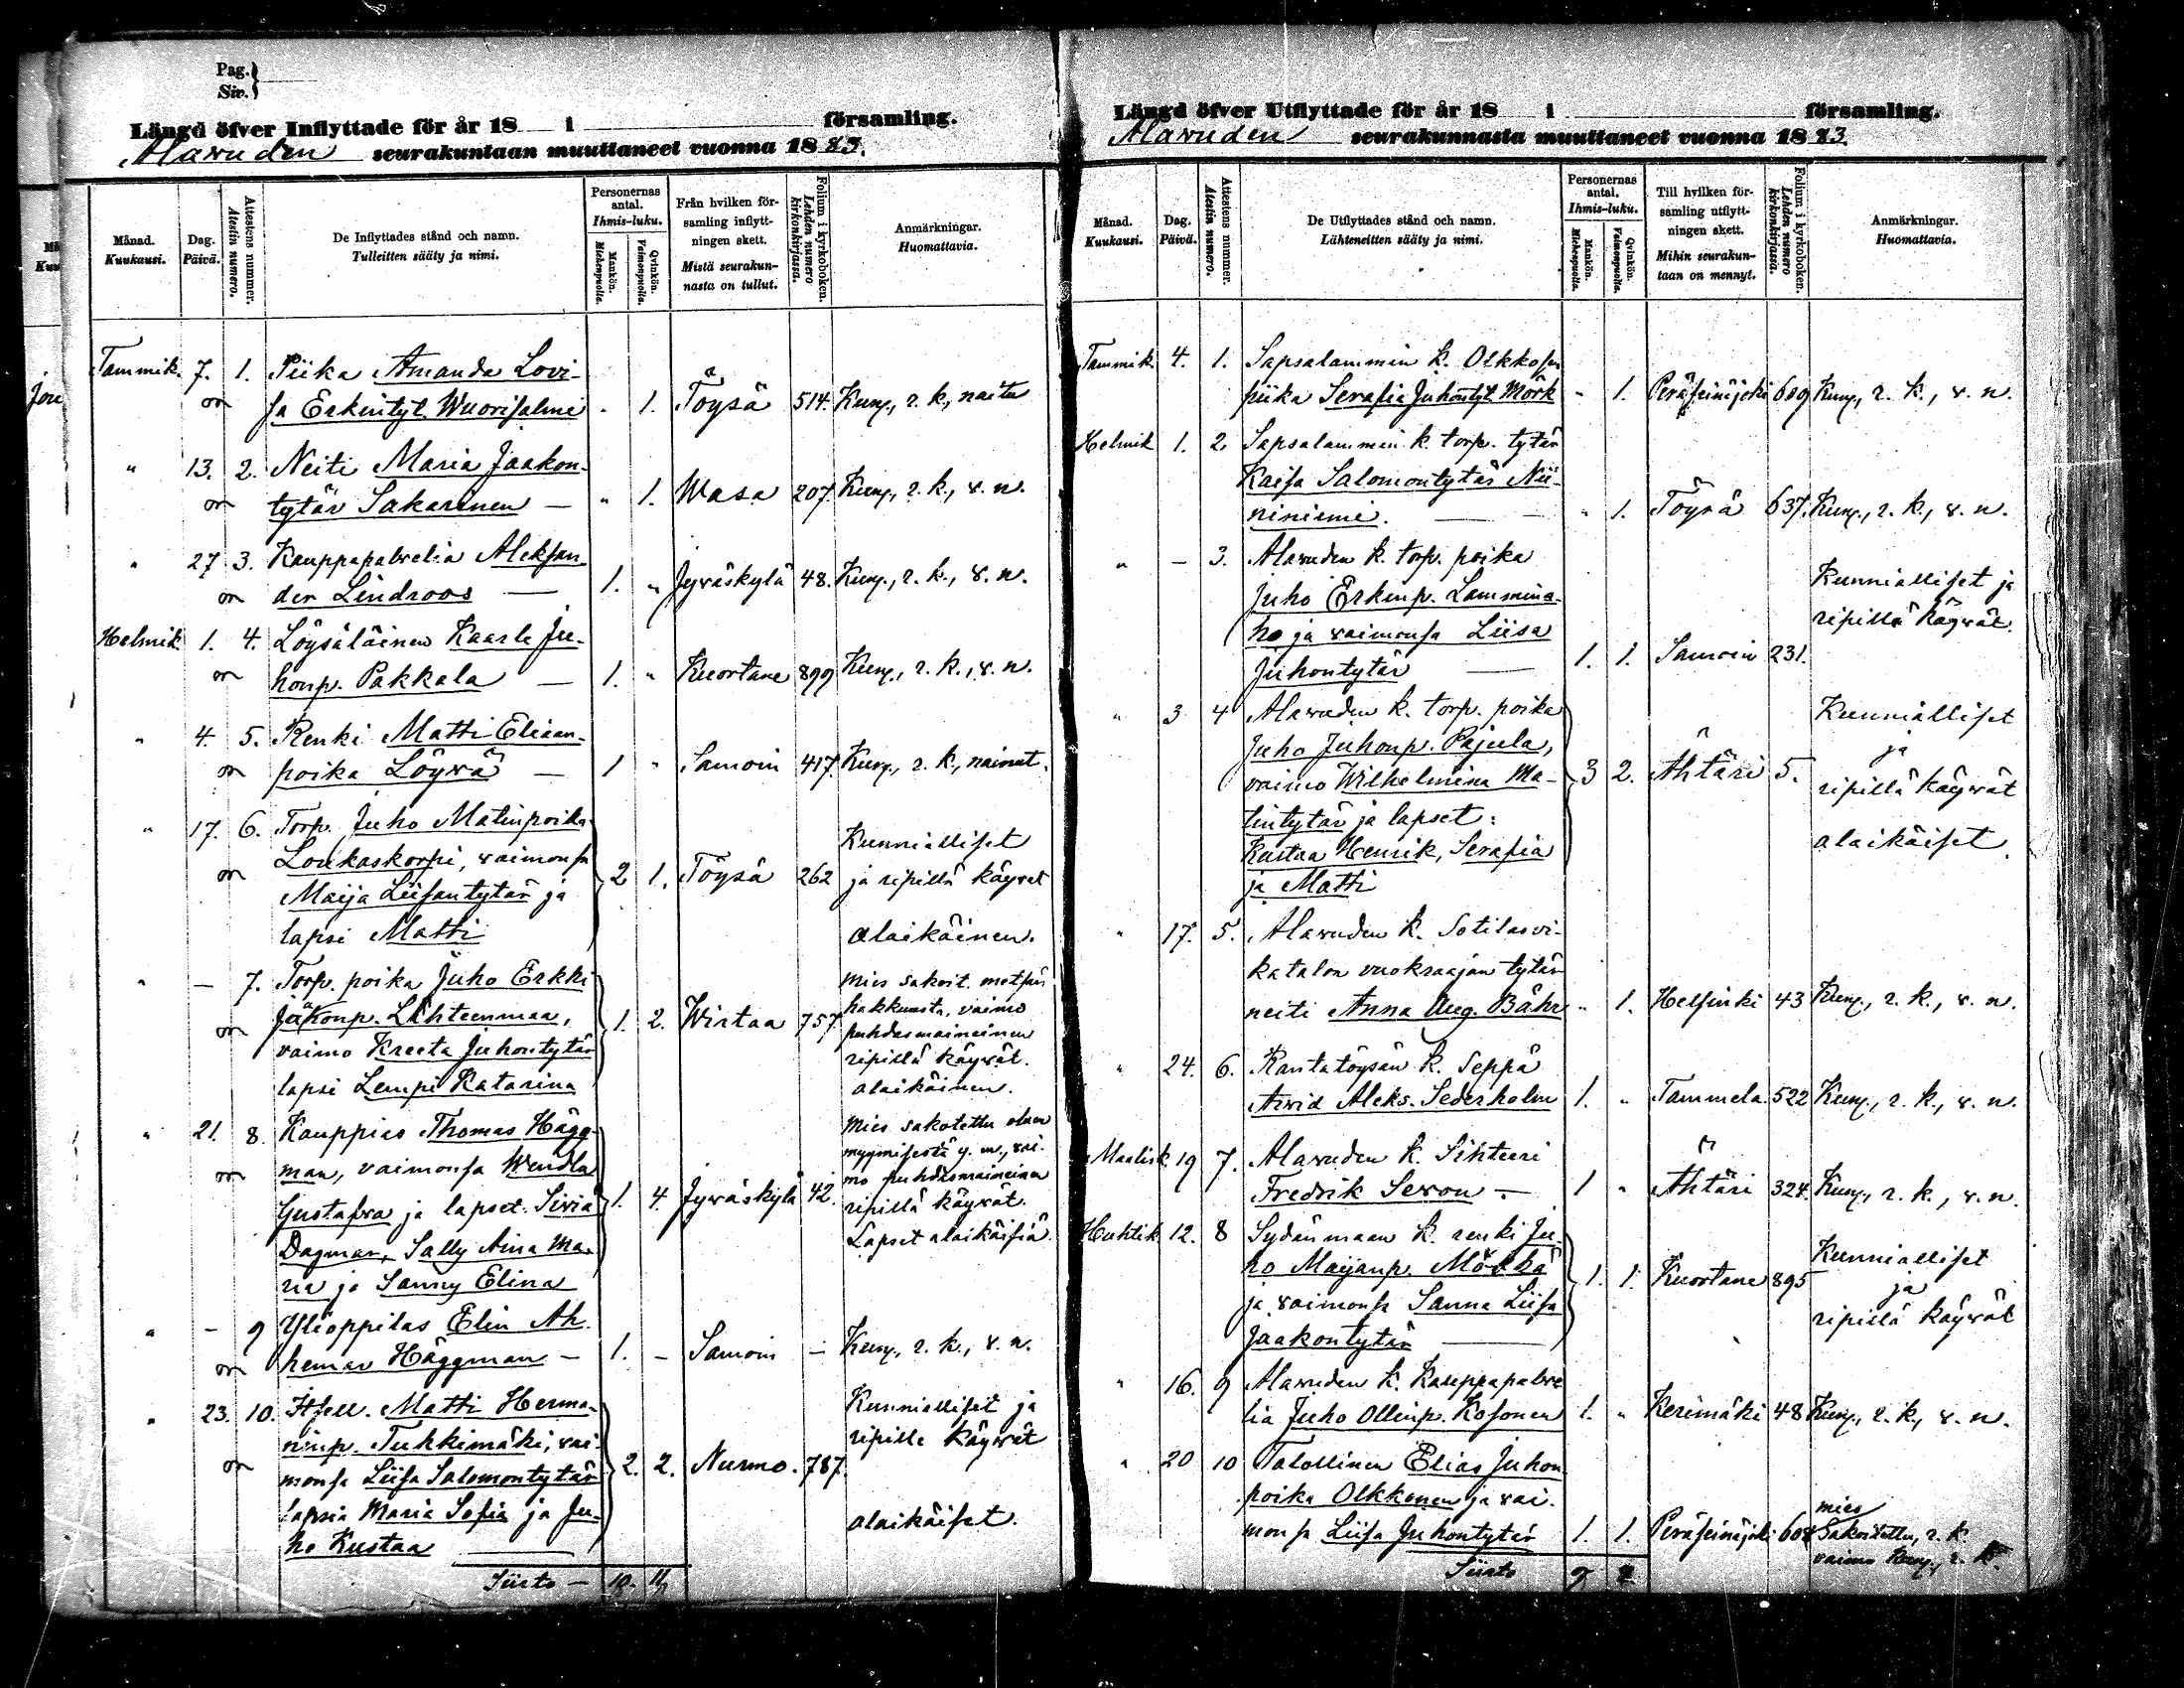 Pag.
Siv.
Längd öfver Inflyttade för år 18 i församling.
Alavuden seurakuntaan muuttaneet vuonna 1883.
Månad. Kuukausi.
Dag. Päivä.
Attestens nummer. Atestin numero.
De Inflyttades stånd och namn. Tulleitten sääty ja nimi.
Personernas antal. Ihmis-luku.
Mankön. Miehenpuolia.
Qvinkön. Vaimonpuolia.
Från hvilken församling inflyttningen skett. Mistä seurakunnasta on tullut.
Folium i kyrkoboken. Lehden numero kirkonkirjassa.
Anmärkningar. Huomattavia.
Tammik. 7. 1. Piika Amanda Lovi-
sa Erkintyt. Wuorisalmi " 1. Töysä 514. Kunn., r. k., naitu
" 13. 2. Neiti Maria Jaakon-
tytär Sakarinen — " 1. Wasa 207. Kunn., r. k., v. n.
" 27 3. Kauppapalvelia Aleksan-
der Lindroos — 1. " Jyväskylä 48. Kunn., r. k., v. n.
Helmik. 1. 4. Löysäläinen Kaarle Ju-
honp. Pakkala — 1. " Kuortane 899 Kunn., r. k., v. n.
" 4. 5. Renki Matti Eliaan-
poika Löyvä — 1 " Samoin 417. Kunn., r. k., nainut.
" 17. 6. Torp. Juho Matinpoika
Loukaskorpi, vaimonsa Kunnialliset
Maija Liisantytär ja 2 1. Töysä 262 ja ripillä käyvät
lapsi Matti alaikäinen.
" — 7. Torp. poika Juho Erkki
Jakonp. Lähteenmaa, 1. 2. Wirtaa 757.
vaimo Kreeta Juhontytär
lapsi Lempi Katarina
mies sakoit. metsän
hakkuusta, vaimo
puhdasmaineinen
ripillä käyvät.
alaikäinen.
" 21. 8. Kauppias Thomas Hägg-
man, vaimonsa Wendla
Gustafva ja lapset. Siviä 1. 4. Jyväskylä 42.
Dagmar, Sally Aina Ma-
ria ja Sanny Elina
mies sakotettu oluen
myymisestä y. m., vai-
mo puhdasmaineinen
ripillä käyvät.
Lapset alaikäisiä.
" - 9 Ylioppilas Elin Ah.
hemar Häggman — 1. - Samoin - Kunn., r. k., v. n.
" 23. 10. Itsell. Matti Herma-
ninp. Tukkimäki, vai-
monsa Liisa Salomontytär 2. 2. Nurmo. 787.
lapsia Maria Sofia ja Ju-
ho Kustaa
Kunnialliset ja
ripille käyvät
alaikäiset.
Siirto — 10. 11
Längd öfver Utflyttade för år 18 i församling.
Alavuden seurakunnasta muuttaneet vuonna 1883.
Månad. Kuukausi.
Dag. Päivä.
Attestens nummer. Atestin numero.
De Utflyttades stånd och namn. Lähteneitten sääty ja nimi.
Personernas antal. Ihmis-luku.
Mankön. Miehenpuolia.
Qvinkön. Vaimonpuolia.
Till hvilken församling utflyttningen skett. Mihin seurakuntaan on mennyt.
Folium i kyrkoboken. Lehden numero kirkonkirjassa.
Anmärkningar. Huomattavia.
Tammik. 4. 1. Sapsalammin k. Olkkosen
piika Serafia Juhontyt. Mörk " 1. Peräseinäjoki 609 Kunn., r. k., v. n.
Helmik 1. 2. Sapsalammin k. torp. tytär
Kaisa Salomontytär Nii-
niniemi. — " 1. Töysä 637. Kunn., r. k., v. n.
" — 3. Alavuden k. torp. poika
Juho Erkinp. Lammina- Kunnialliset ja
ho ja vaimonsa Liisa ripillä käyvät.
Juhontytär — 1. 1. Samoin 231.
" 3 4 Alavuden k. torp. poika Kunnialliset
Juho Juhonp. Pajula, ja
vaimo Wilhelmina Ma- 3 2. Ähtäri 5. ripillä käyvät
tintytär ja lapset:
Kustaa Henrik, Serafia alaikäiset.
ja Matti
" 17. 5. Alavuden k. Sotilasvi-
katalon vuokraajan tytär
neiti Anna Aug. Båhr " 1. Helsinki 43 Kunn., r. k., v. n.
" 24. 6. Rantatöysän k. Seppä
Arvid Aleks. Sederholm 1. " Tammela 522 Kunn., r. k., v. n.
Maalisk. 19 7. Alavuden k. Sihteeri
Fredrik Sevon — 1 " Ähtäri 324. Kunn., r. k., v. n.
Huhtik. 12. 8 Sydänmaan k. renki Ju-
ho Maijanp. Mökkä Kunnialliset
ja vaimonsa Sanna Liisa 1. 1. Kuortane 895 ja
Jaakontytär — ripillä käyvät
" 16. 9 Alavuden k. Kauppapalve
lia Juho Ollinp. Kosonen 1. " Kerimäki 48 Kunn., r. k., v. n.
" 20 10 Talollinen Elias Juhon
poika Olkkonen ja vai- mies
monsa Liisa Juhontytär 1. 1. Peräseinäjoki 608 Sakoitettu, r. k.
vaimo Kunn., r. k.
Siirto 9